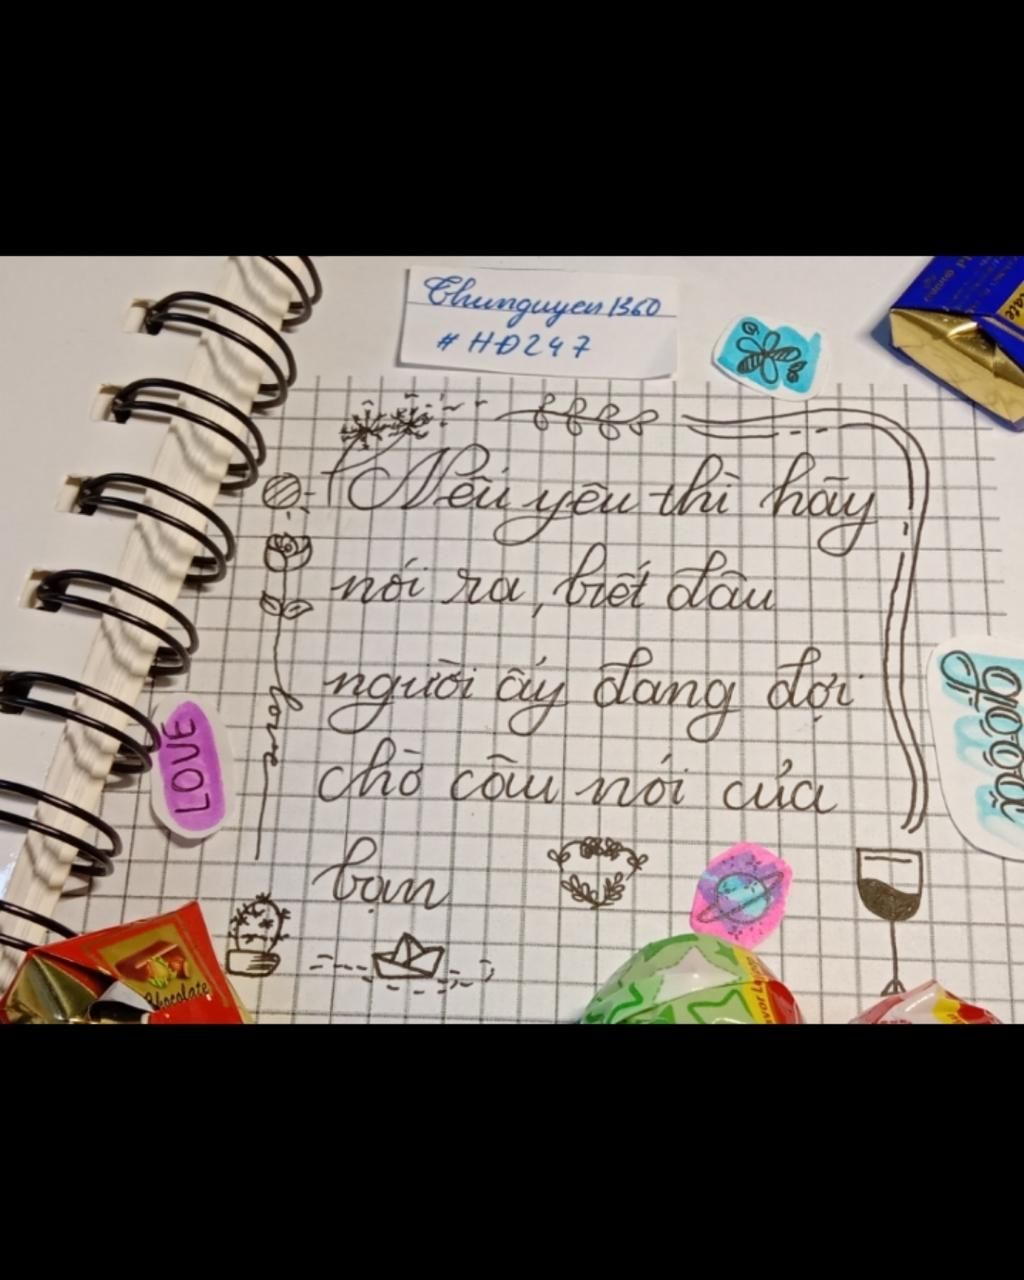 Thunguyen1360
#HĐ247
Nếu yêu thì hãy
nói ra, biết đâu
người ấy đang đợi
chờ câu nói của
bạn
love
LOVE
Chocolate